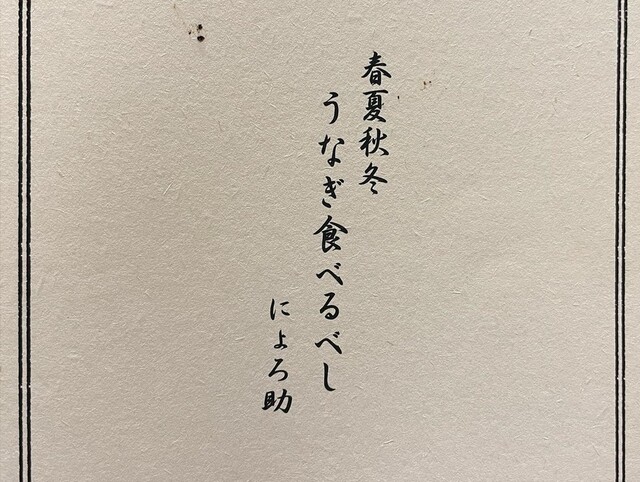 春夏秋冬
うなぎ食べるべし
によろ助